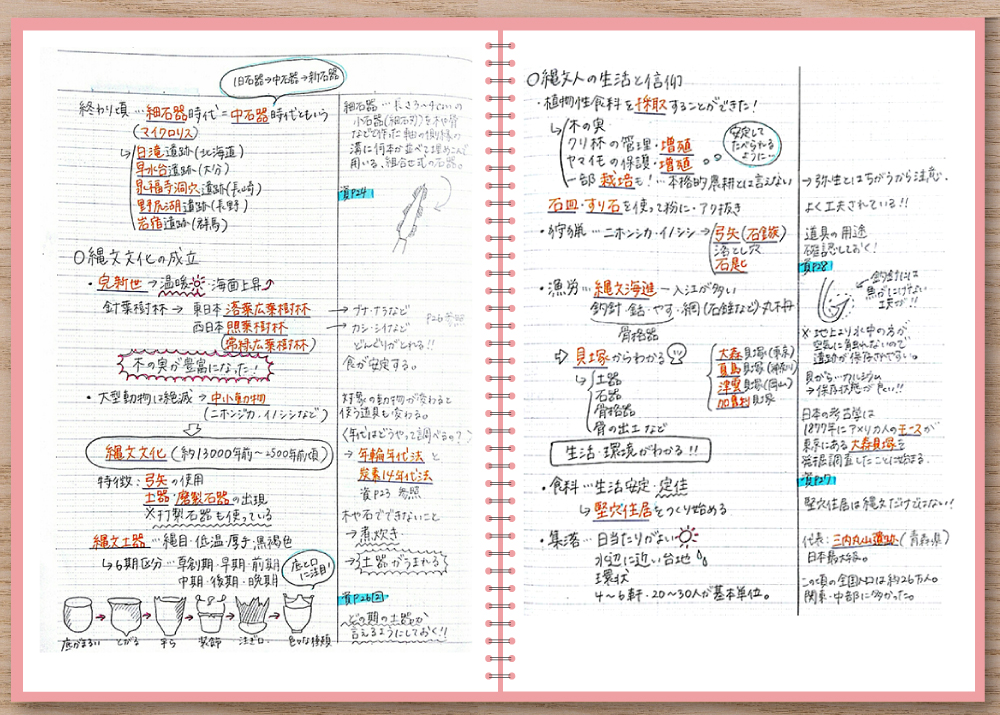 旧石器→中石器→新石器
終わり頃…細石器時代=中石器時代ともいう
(マイクロリス)
↳白滝遺跡(北海道)
早水台遺跡(大分)
泉福寺洞穴遺跡(長崎)
野尻湖遺跡(長野)
岩宿遺跡(群馬)
〇縄文文化の成立
・完新世→温暖・海面上昇
針葉樹林→東日本 落葉広葉樹林
西日本 照葉樹林
(常緑広葉樹林)
木の実が豊富になった!
・大型動物は絶滅→中小動物
(ニホンジカ・イノシシなど)
縄文文化(約13000年前~2500年前頃)
特徴:弓矢の使用
土器・磨製石器の出現
※打製石器も使っている
縄文土器…縄目・低温・厚手・黒褐色
→6期区分…草創期・早期・前期
中期・後期・晩期
底と口に注目!
底がまるい
とがる
平ら
装飾
注ぎ口
色々な種類
細石器…長さ3~4cmの
小石器(細石刃)を木や骨
などで作った軸の側縁の
溝に何本か並べて埋めこんで
用いる、組合せ式の石器。
資P24
→ブナ・ナラなど
→カシ・シイなど
どんぐりがとれる!!
食が安定する。
対象の動物が変わると
使う道具も変わる。
〈年代はどうやって調べるの?〉
→年輪年代法と
炭素14年代法
資P23 参照
木や石でできないこと
→煮炊き
→土器がうまれる
資P26②
どの期の土器か
言えるようにしておく!!
〇縄文人の生活と信仰
・植物性食料を採取することができた!
↳木の実
クリ林の管理・増殖
ヤマイモの保護・増殖
一部栽培も!…本格的農耕とは言えない
安定して
たべられる
ように…
石皿・すり石を使って粉に・アク抜き
・狩猟…ニホンシカ・イノシシ→弓矢(石鏃)
落とし穴
石匙
・漁労…縄文海進…入江が多い
釣針・銛・やす・網(石錘など)丸木舟
骨格器
⇨貝塚からわかる
↳土器
石器
骨格器
骨の出土など
大森貝塚(東京)
夏島貝塚(神奈川)
津雲貝塚(岡山)
加曽利貝塚
生活・環境がわかる!!
・食料…生活安定・定住
↳竪穴住居をつくり始める
・集落…日当たりがよい
水辺に近い台地
環状
4~6軒・20~30人が基本単位。
→弥生とはちがうから注意。
よく工夫されている!!
道具の用途
確認しておく!
資P28
釣針には
魚がにげない
工夫が!!
※地上より水中の方が
空気に触れないので
遺跡が保存されやすい。
貝がら…カルシウム
→保存状態が良い!!
日本の考古学は
1877年にアメリカ人のモースが
東京にある大森貝塚を
発掘調査したことに始まる。
資P27
竪穴住居は縄文だけではない!
代表:三内丸山遺跡(青森県)
日本最大級。
この頃の全国人口は約26万人。
関東・中部に多かった。